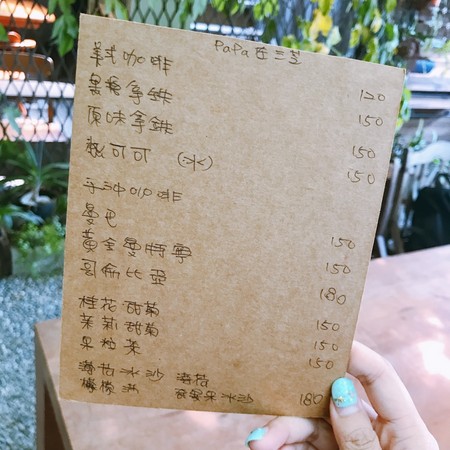 PaPa在三芝
美式咖啡 120
黑糖拿鐵 150
原味拿鐵 150
熱可可 (冰) 150
手沖咖啡
曼巴 150
黃金曼特寧 150
哥倫比亞 180
桂花甜菊 150
茉莉甜菊 150
果粒茶 150
冰沙
檸檬 百香果冰沙 180